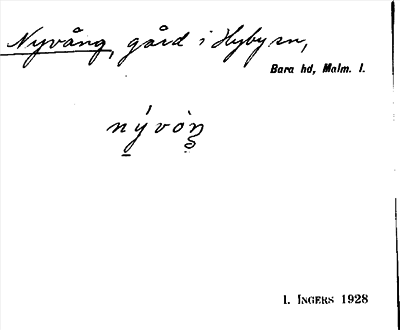 Nyvång, gård i Hyby sn,
Bara hd, Malm. l.
nývòŋ
I. INGERS 1928